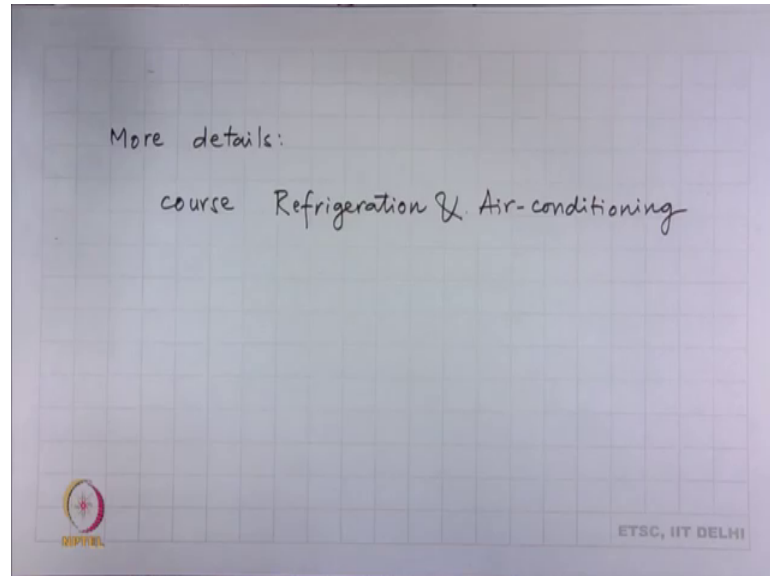 More details:
course Refrigeration & Air-conditioning
ETSC, IIT DELHI